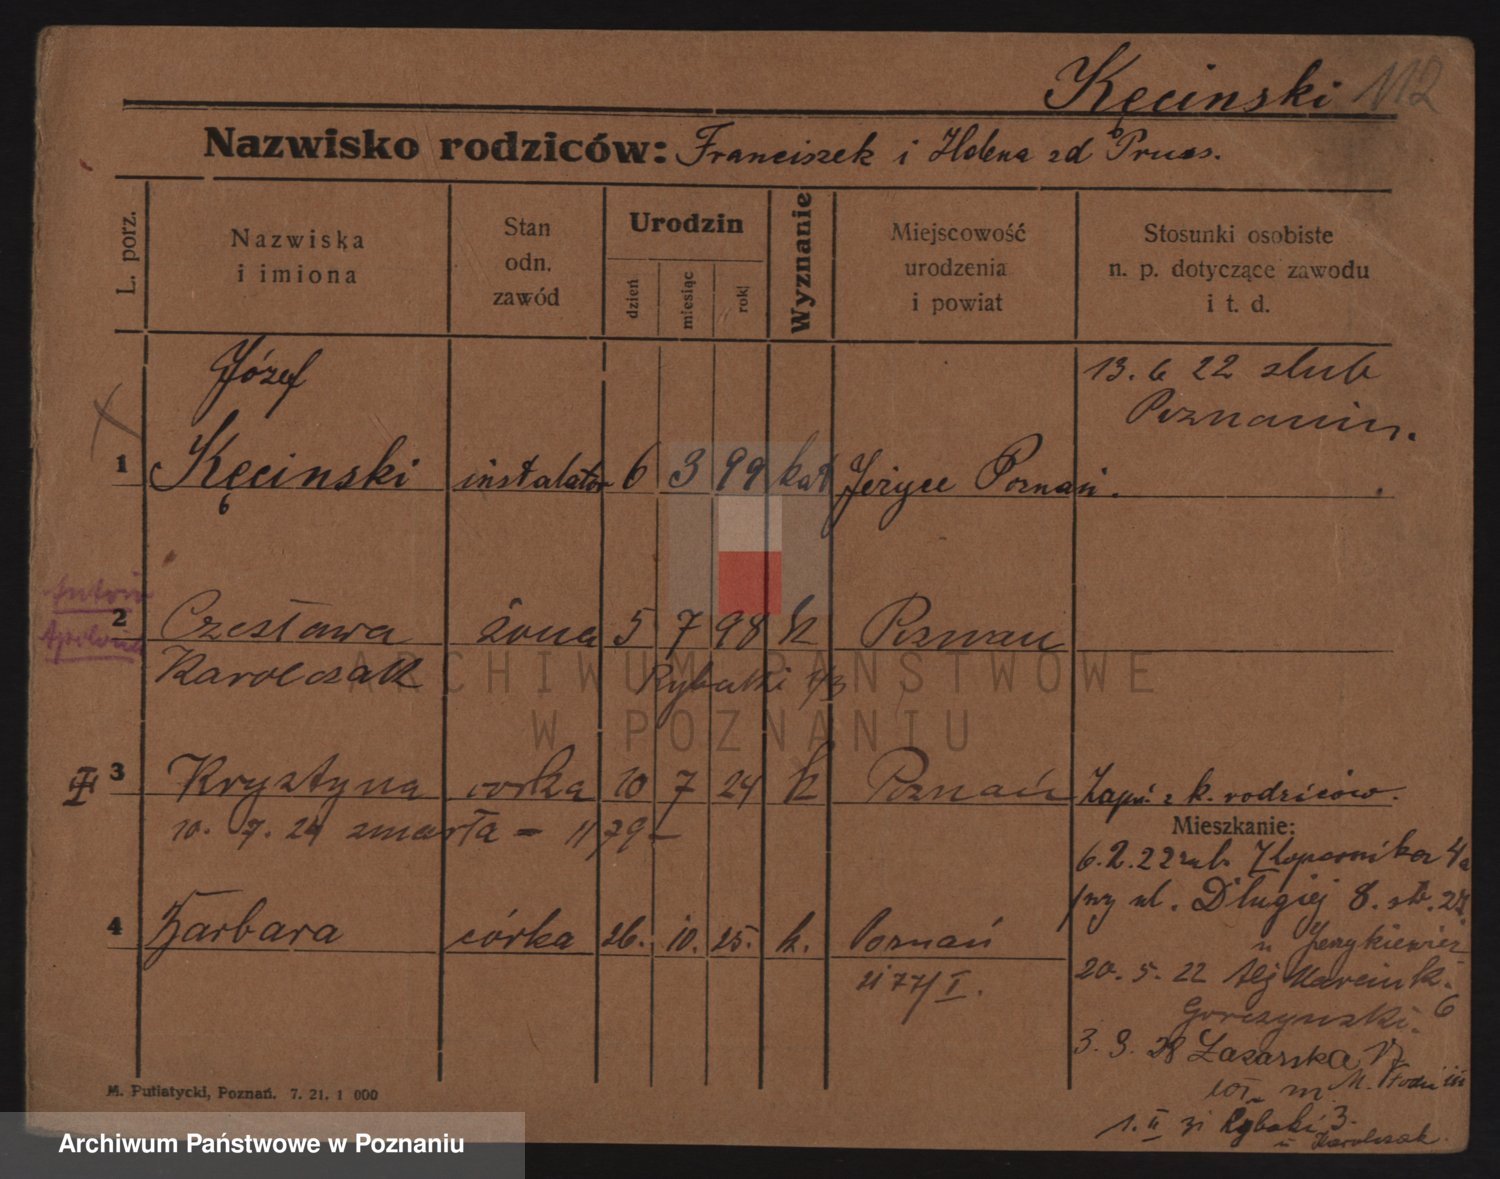 Kęcinski 112
Nazwisko rodziców: Franciszek i Helena zd Pruss.
L. porz.
Nazwiska
i imiona
Stan
odn.
zawód
Urodzin
dzień
miesiąc
rok
Wyznanie
Miejscowość
urodzenia
i powiat
Stosunki osobiste
n. p. dotyczące zawodu
i t. d.
Józef
13. 6 22 slub
Poznaniu.
1 Kęcinski instalator 6 3 99 kat Jeżyce Poznań.
2 Czesława żona 5 7 98 k Poznań
Karolczak Rybaki 1/3
3 Krystyna corka 10 7 24 k Poznań Zapis. z k. rodziców.
10. 7. 24 zmarła - 1179 -
Mieszkanie:
6. 2. 22 Kopernika 4a
przy ul. Długiej 8.
4 Barbara córka 26. 10. 25. k. Poznań
u
20. 5. 22 Alj Marcink. 6
Gorczynski.
3. 9. 28 Łazarska
1. II 31 Rybaki 3.
u Karolczak.
M. Putiatycki, Poznań. 7. 21. 1 000
ARCHIWUM PAŃSTWOWE
W POZNANIU
Archiwum Państwowe w Poznaniu